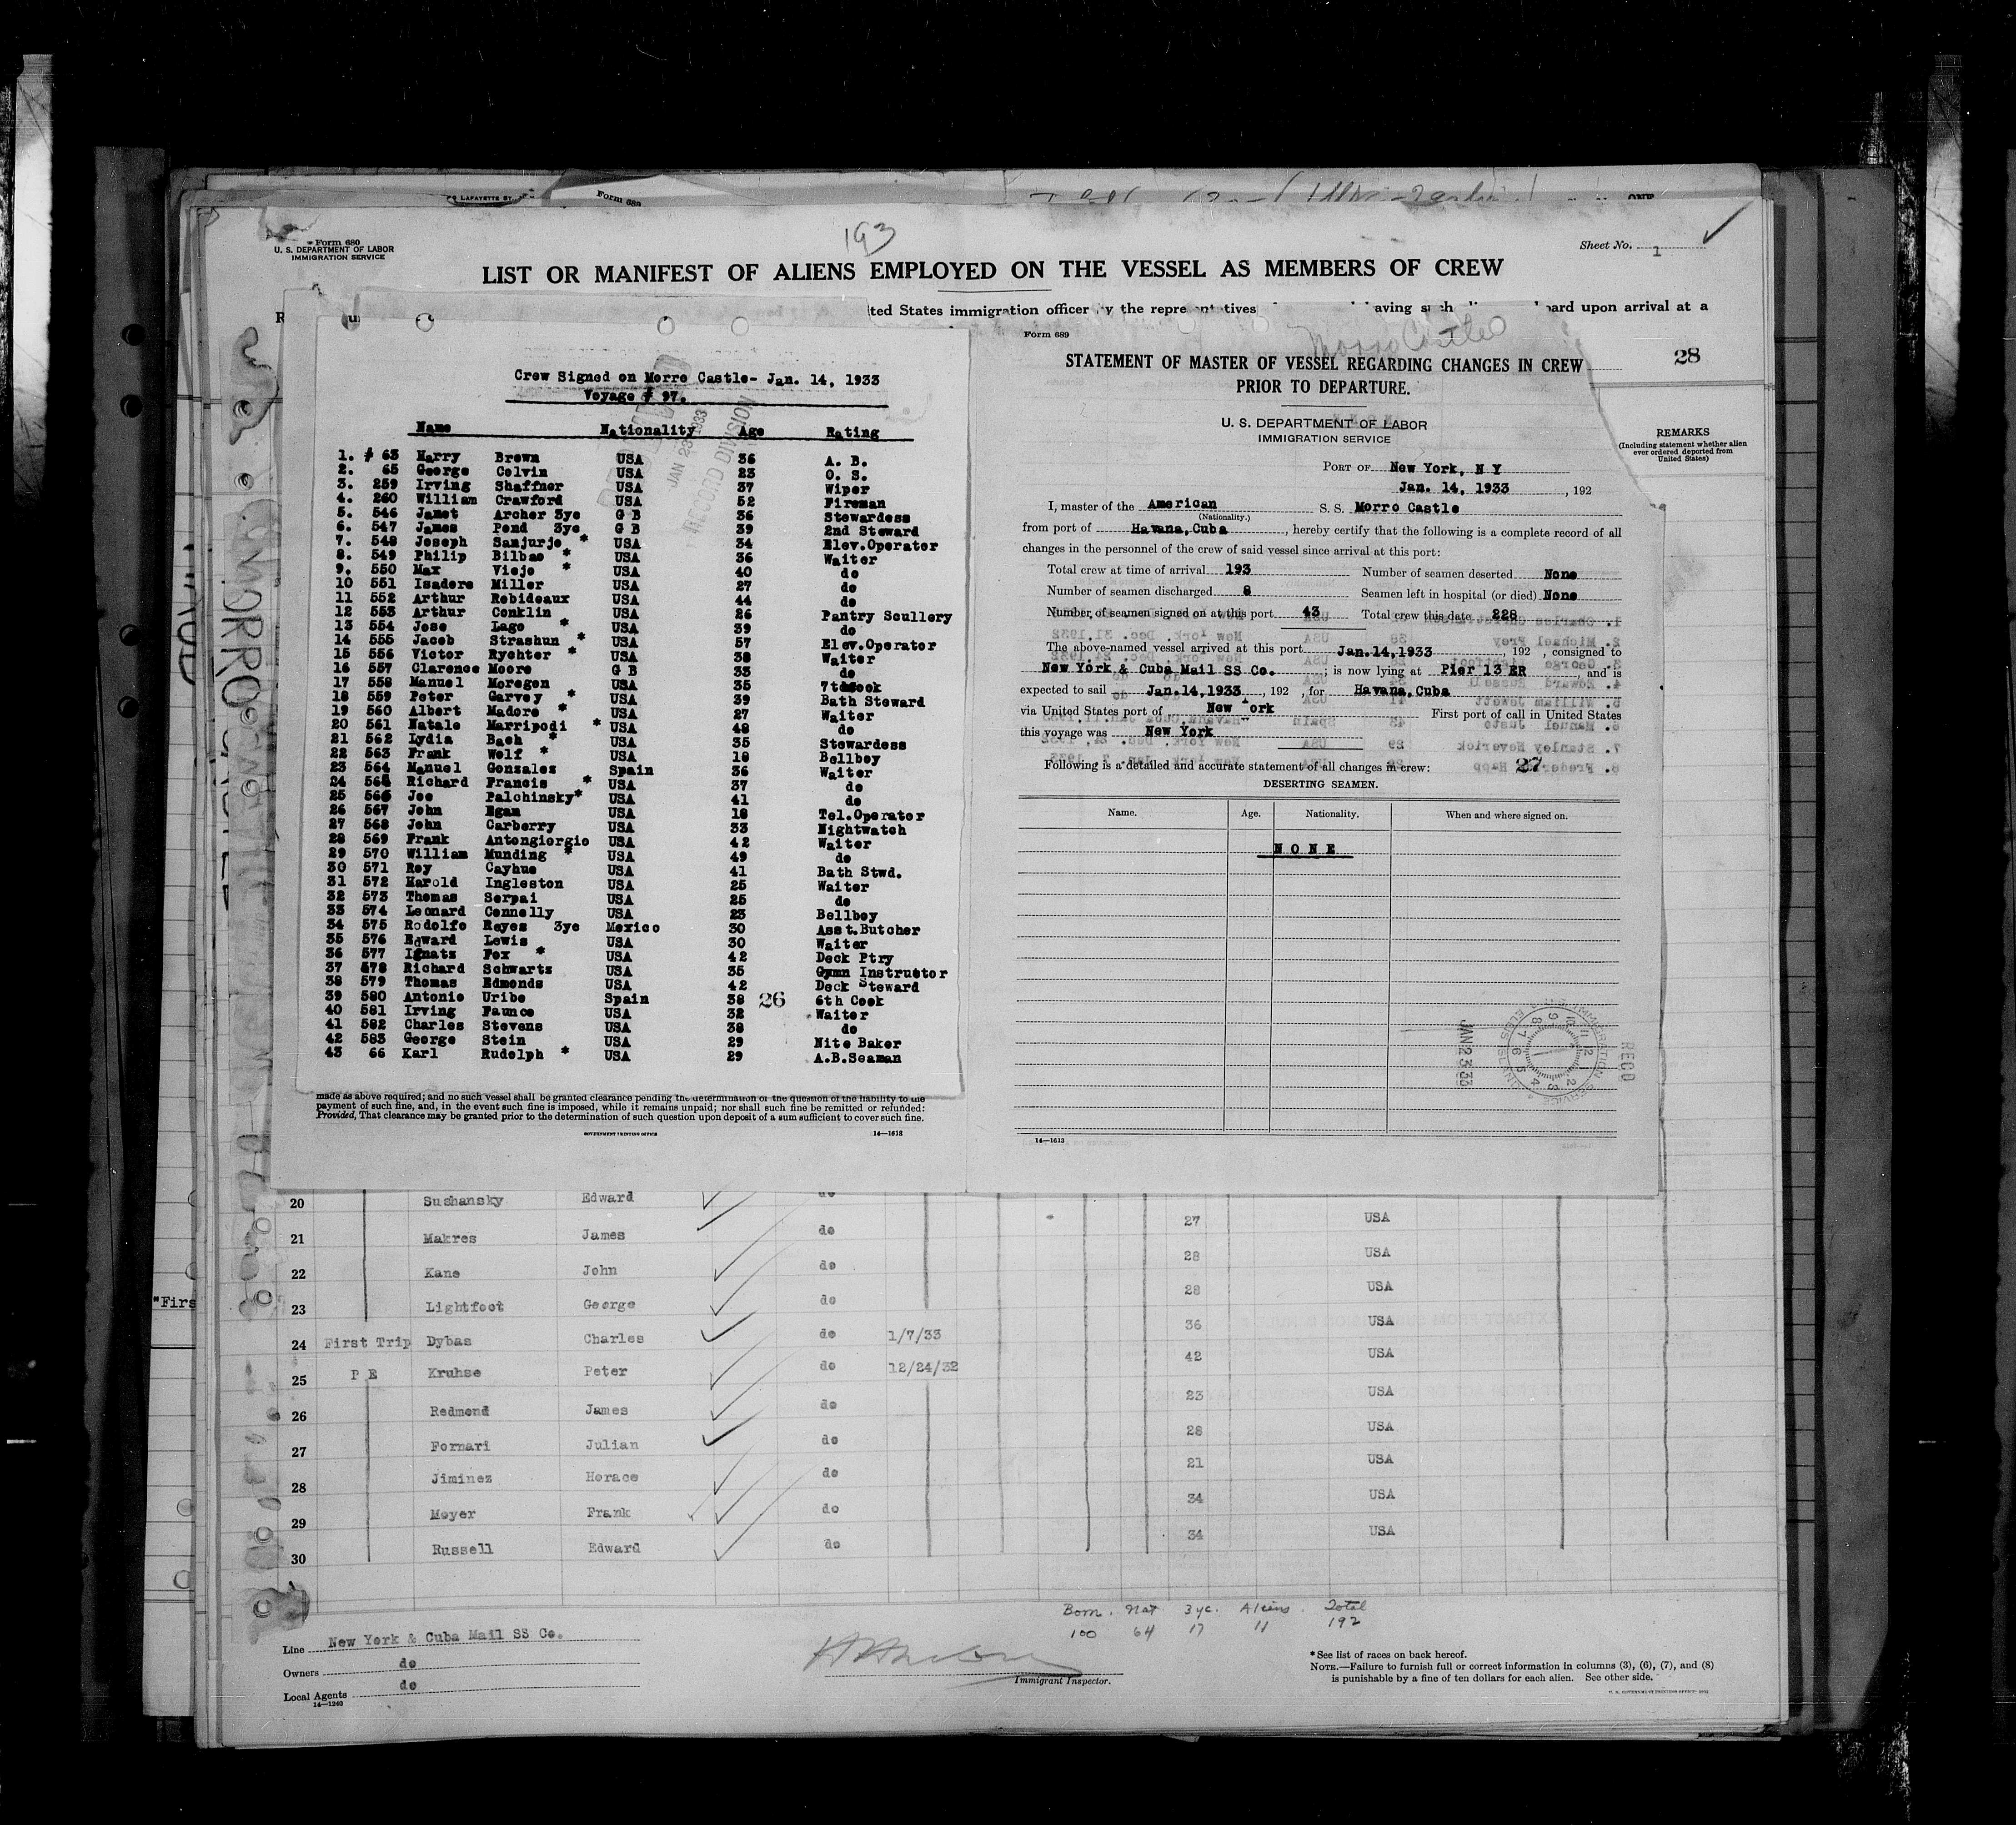 Form 689
ONE
Form 680
U. S. DEPARTMENT OF LABOR
IMMIGRATION SERVICE
193
Sheet No. 1
LIST OR MANIFEST OF ALIENS EMPLOYED ON THE VESSEL AS MEMBERS OF CREW
ted States immigration officer by the representatives
aving such
oard upon arrival at a
28
REMARKS
(Including statement whether alien
ever ordered deported from
United States)
Crew Signed on Morro Castle- Jan. 14, 1933
Voyage # 97.
Name Nationality Age Rating
1. # 63 Harry Brown USA 36 A. B.
2. 65 George Colvin USA 23 O. S.
3. 259 Irving Shaffner USA 37 Wiper
4. 260 William Crawford USA 52 Fireman
5. 546 Janet Archer 3ye G B 36 Stewardess
6. 547 James Pond 3ye G B 39 2nd Steward
7. 548 Joseph Sanjurjo * USA 34 Elev.Operator
8. 549 Philip Bilbao * USA 36 Waiter
9. 550 Max Viejo * USA 40 do
10 551 Isadore Miller USA 27 do
11 552 Arthur Robideaux USA 44 do
12 553 Arthur Conklin USA 26 Pantry Scullery
13 554 Jose Lago * USA 39 do
14 555 Jacob Strashun * USA 57 Elev.Operator
15 556 Victor Rychter * USA 38 Waiter
16 557 Clarence Moore G B 33 do
17 558 Manuel Moregon USA 35 7th Cook
18 559 Peter Garvey * USA 39 Bath Steward
19 560 Albert Madore * USA 27 Waiter
20 561 Natale Marripodi * USA 48 do
21 562 Lydia Bach * USA 35 Stewardess
22 563 Frank Wolf * USA 18 Bellboy
23 564 Manuel Gonzales Spain 36 Waiter
24 565 Richard Francis * USA 37 do
25 566 Joe Palchinsky* USA 41 do
26 567 John Egan USA 18 Tel.Operator
27 568 John Carberry USA 33 Nightwatch
28 569 Frank Antongiorgio USA 42 Waiter
29 570 William Munding * USA 49 do
30 571 Roy Cayhue USA 41 Bath Stwd.
31 572 Harold Ingleston USA 25 Waiter
32 573 Thomas Serpai USA 25 do
33 574 Leonard Connelly USA 23 Bellboy
34 575 Rodolfo Reyes 3ye Mexico 30 Asst.Butcher
35 576 Edward Lewis USA 30 Waiter
36 577 Ignatz Fox * USA 42 Deck Ptry
37 578 Richard Schwartz USA 35 Gymn Instructor
38 579 Thomas Edmonds USA 42 Deck Steward
39 580 Antonio Uribe Spain 38 26 6th Cook
40 581 Irving Faunce USA 32 Waiter
41 582 Charles Stevens USA 38 do
42 583 George Stein USA 29 Nite Baker
43 66 Karl Rudolph * USA 29 A.B.Seaman
JAN 23 1933
RECORD DIVISION
made as above required; and no such vessel shall be granted clearance pending the determination of the question of the liability to the
payment of such fine, and, in the event such fine is imposed, while it remains unpaid; nor shall such fine be remitted or refunded:
Provided, That clearance may be granted prior to the determination of such question upon deposit of a sum sufficient to cover such fine.
GOVERNMENT PRINTING OFFICE 14—1613
Form 689
Morro Castle
STATEMENT OF MASTER OF VESSEL REGARDING CHANGES IN CREW
PRIOR TO DEPARTURE.
U. S. DEPARTMENT OF LABOR
IMMIGRATION SERVICE
PORT OF New York, N Y
Jan. 14, 1933, 192
I, master of the American S. S. Morro Castle
(Nationality.)
from port of Havana, Cuba, hereby certify that the following is a complete record of all
changes in the personnel of the crew of said vessel since arrival at this port:
Total crew at time of arrival 193 Number of seamen deserted None
Number of seamen discharged 8 Seamen left in hospital (or died) None
Number of seamen signed on at this port 43 Total crew this date 228
The above-named vessel arrived at this port Jan.14,1933, 192 , consigned to
New York & Cuba Mail SS Co. ; is now lying at Pier 13 ER, and is
expected to sail Jan.14,1933, 192 , for Havana, Cuba
via United States port of New York First port of call in United States
this voyage was New York
Following is a detailed and accurate statement of all changes in crew: 27
DESERTING SEAMEN.
Name. Age. Nationality. When and where signed on.
N O N E
RECD
JAN 23 33
IMMIGRATION SERVICE
ELLIS ISLAND
14—1613
MORRO CASTLE
"Firs
20 Sushansky Edward do
21 Makres James do 27 USA
22 Kane John do 28 USA
23 Lightfoot George do 28 USA
24 First Trip Dybas Charles do 1/7/33 36 USA
25 P E Kruhse Peter do 12/24/32 42 USA
26 Redmond James do 23 USA
27 Fornari Julian do 28 USA
28 Jiminez Horace do 21 USA
29 Meyer Frank do 34 USA
30 Russell Edward do 34 USA
Born. Nat 3yc. Aliens. Total
100 64 17 11 192
Line New York & Cuba Mail SS Co.
Owners do
Local Agents do
14—1240
Immigrant Inspector.
*See list of races on back hereof.
NOTE.—Failure to furnish full or correct information in columns (3), (6), (7), and (8)
is punishable by a fine of ten dollars for each alien. See other side.